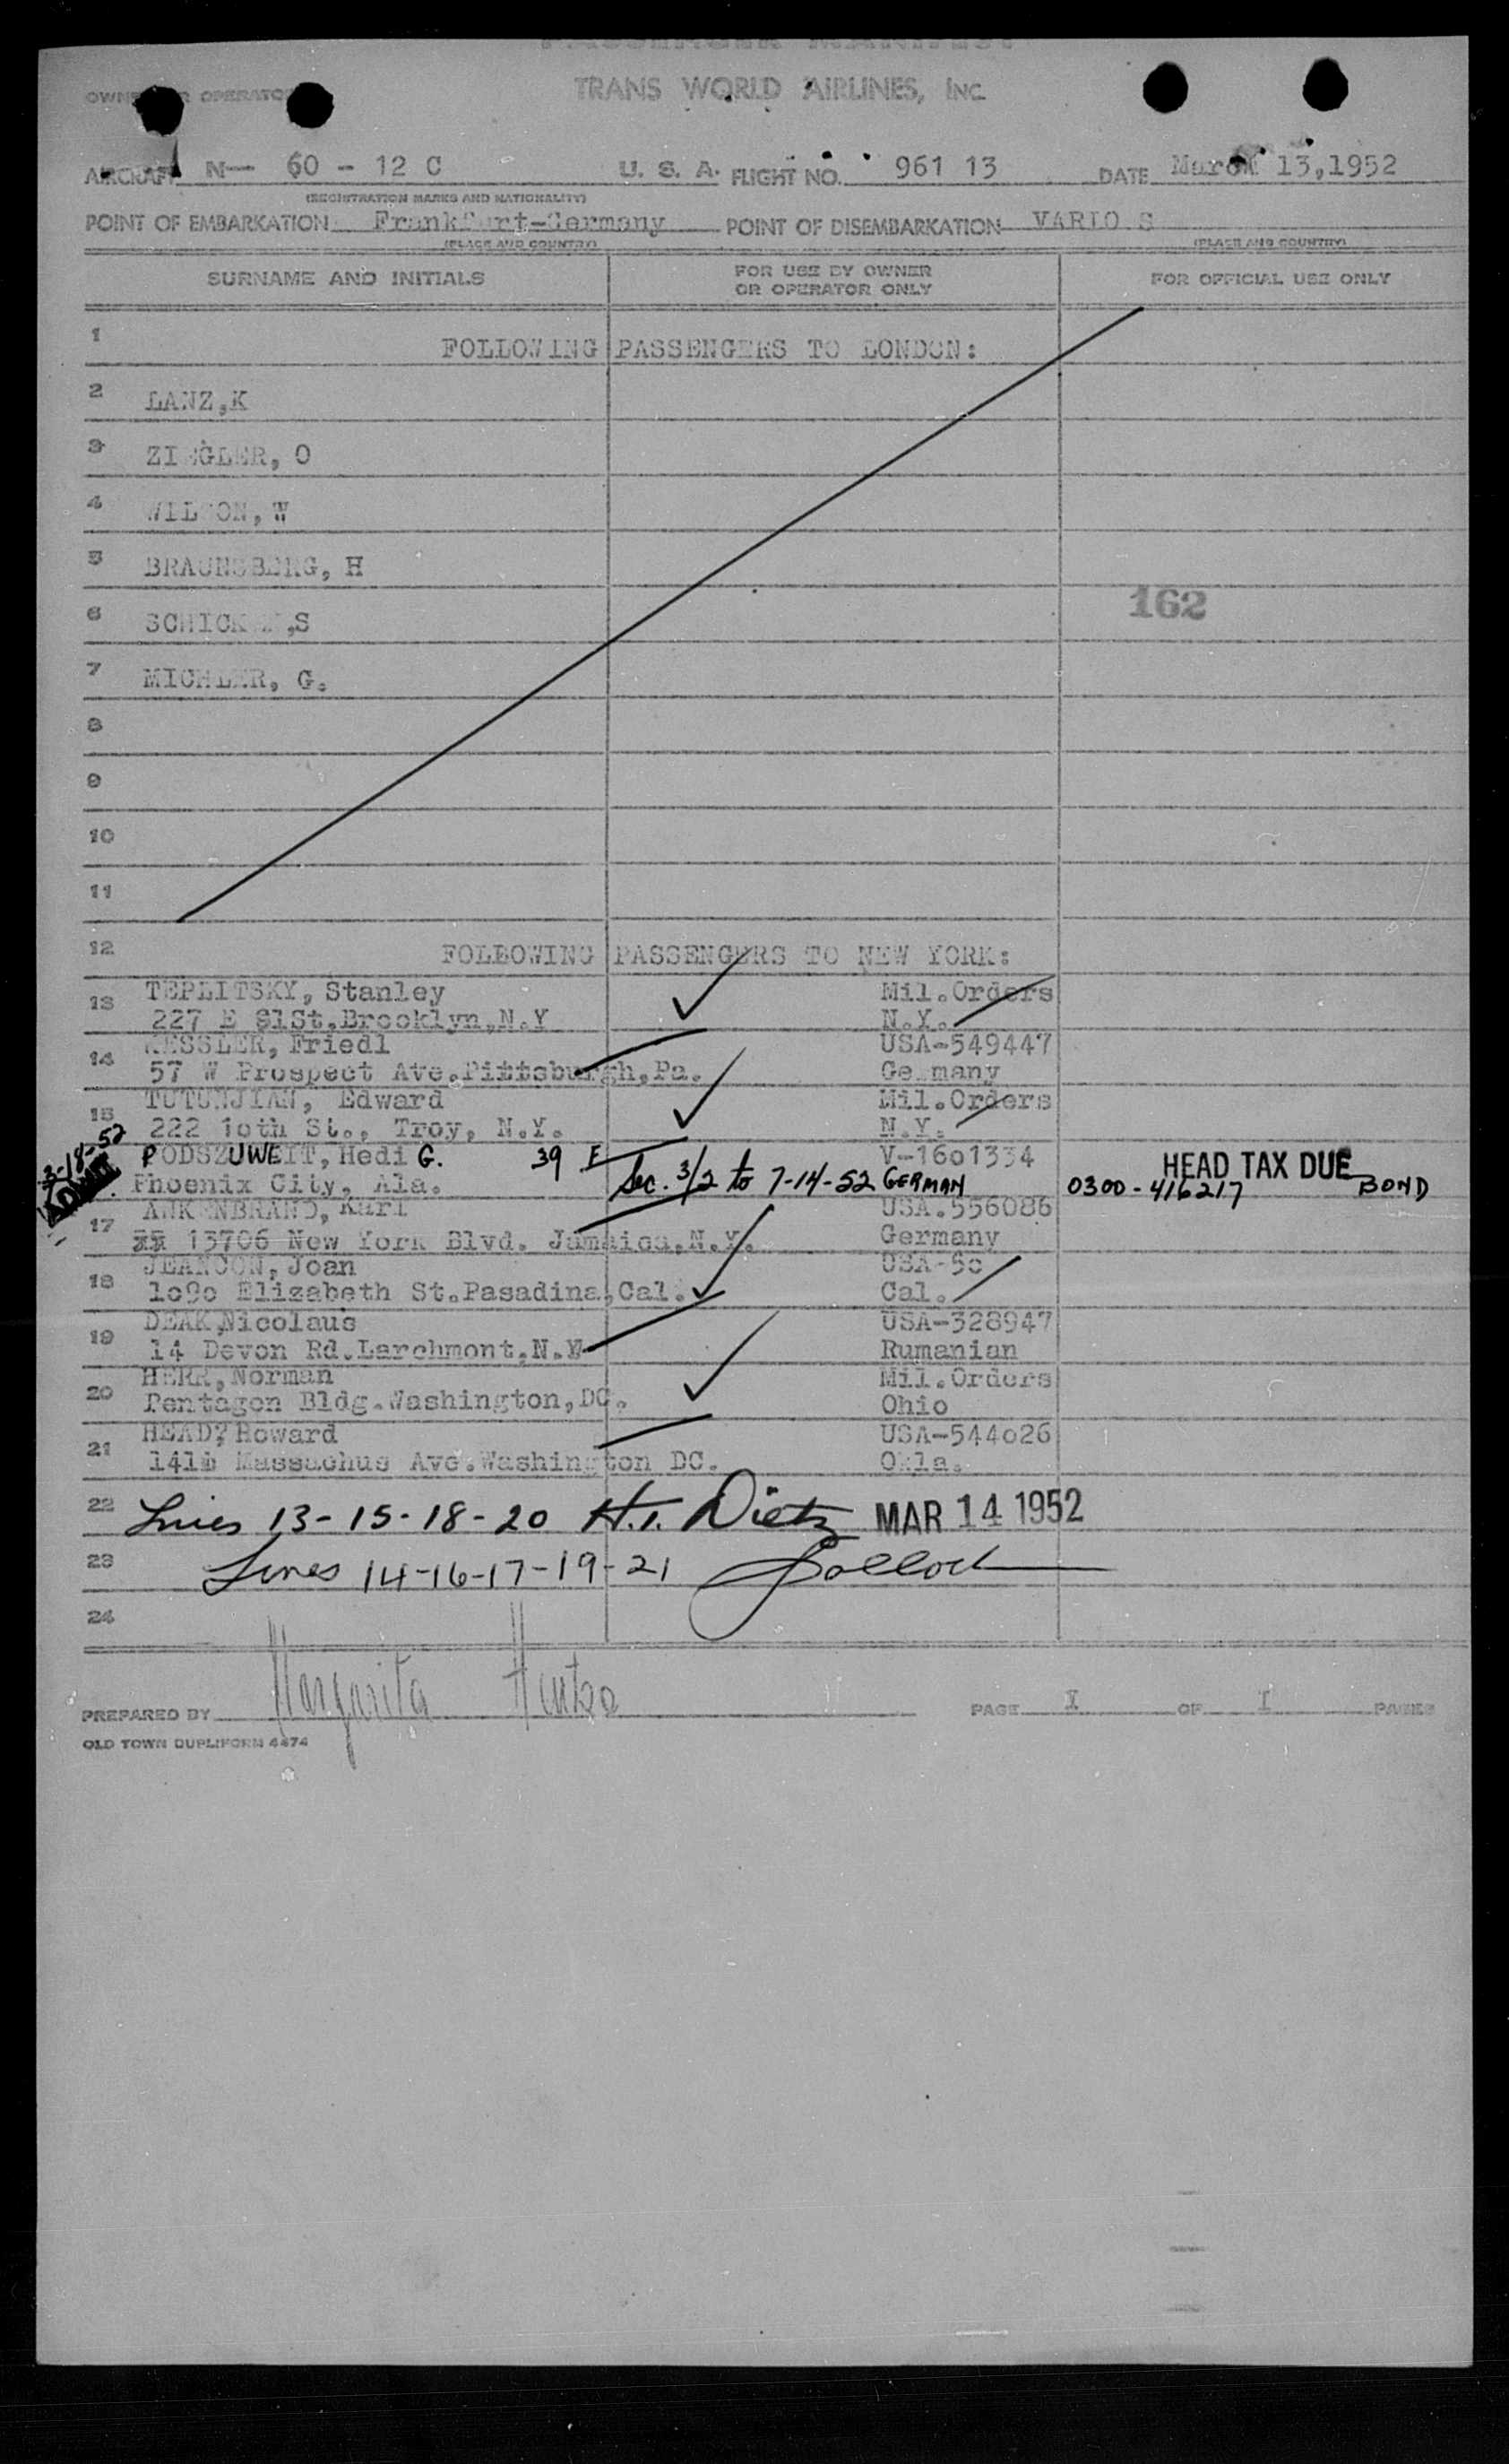 PASSENGER MANIFEST
TRANS WORLD AIRLINES, INC.
OWNER OR OPERATOR
AIRCRAFT N— 60 - 12 C U. S. A. FLIGHT NO. 961 13 DATE March 13,1952
(REGISTRATION MARKS AND NATIONALITY)
POINT OF EMBARKATION Frankfurt-Germany POINT OF DISEMBARKATION VARIO S
(PLACE AND COUNTRY) (PLACE AND COUNTRY)
SURNAME AND INITIALS FOR USE BY OWNER OR OPERATOR ONLY FOR OFFICIAL USE ONLY
1 FOLLOWING PASSENGERS TO LONDON:
2 LANZ,K
3 ZIEGLER, O
4 WILSON, W
5 BRAUNSBERG, H
162
6 SCHICK ,S
7 MICHLER, G.
8
9
10
11
12 FOLLOWING PASSENGERS TO NEW YORK:
13 TEPLITSKY, Stanley Mil.Orders
227 E 81St.Brooklyn,N.Y N.Y.
14 KESSLER, Friedl USA-549447
57 W Prospect Ave.Pittsburgh,Pa. Germany
15 TUTUNJIAN, Edward Mil.Orders
222 1oth St., Troy, N.Y. N.Y.
3-18-52 PODSZUWEIT, Hedi G. 39 F V-16o1334 HEAD TAX DUE
ADMIT Phoenix City, Ala. Sec. 3/2 to 7-14-52 GERMAN 0300-416217 BOND
17 ANKENBRAND, Karl USA.556086
xx 13706 New York Blvd. Jamaica,N.Y. Germany
18 JEANCON, Joan USA-5c
1o9o Elizabeth St.Pasadina,Cal. Cal.
19 DEAK,Nicolaus USA-328947
14 Devon Rd.Larchmont,N.Y Rumanian
20 HERR,Norman Mil.Orders
Pentagon Bldg.Washington,DC. Ohio
21 HEAD, Howard USA-544o26
Massachus Ave.Washington DC. Okla.
22 Lines 13-15-18-20 H.T. Dietz MAR 14 1952
23 Lines 14-16-17-19-21 Pollock
24
PREPARED BY Margarita PAGE I OF I PAGES
OLD TOWN DUPLIFORM 4474